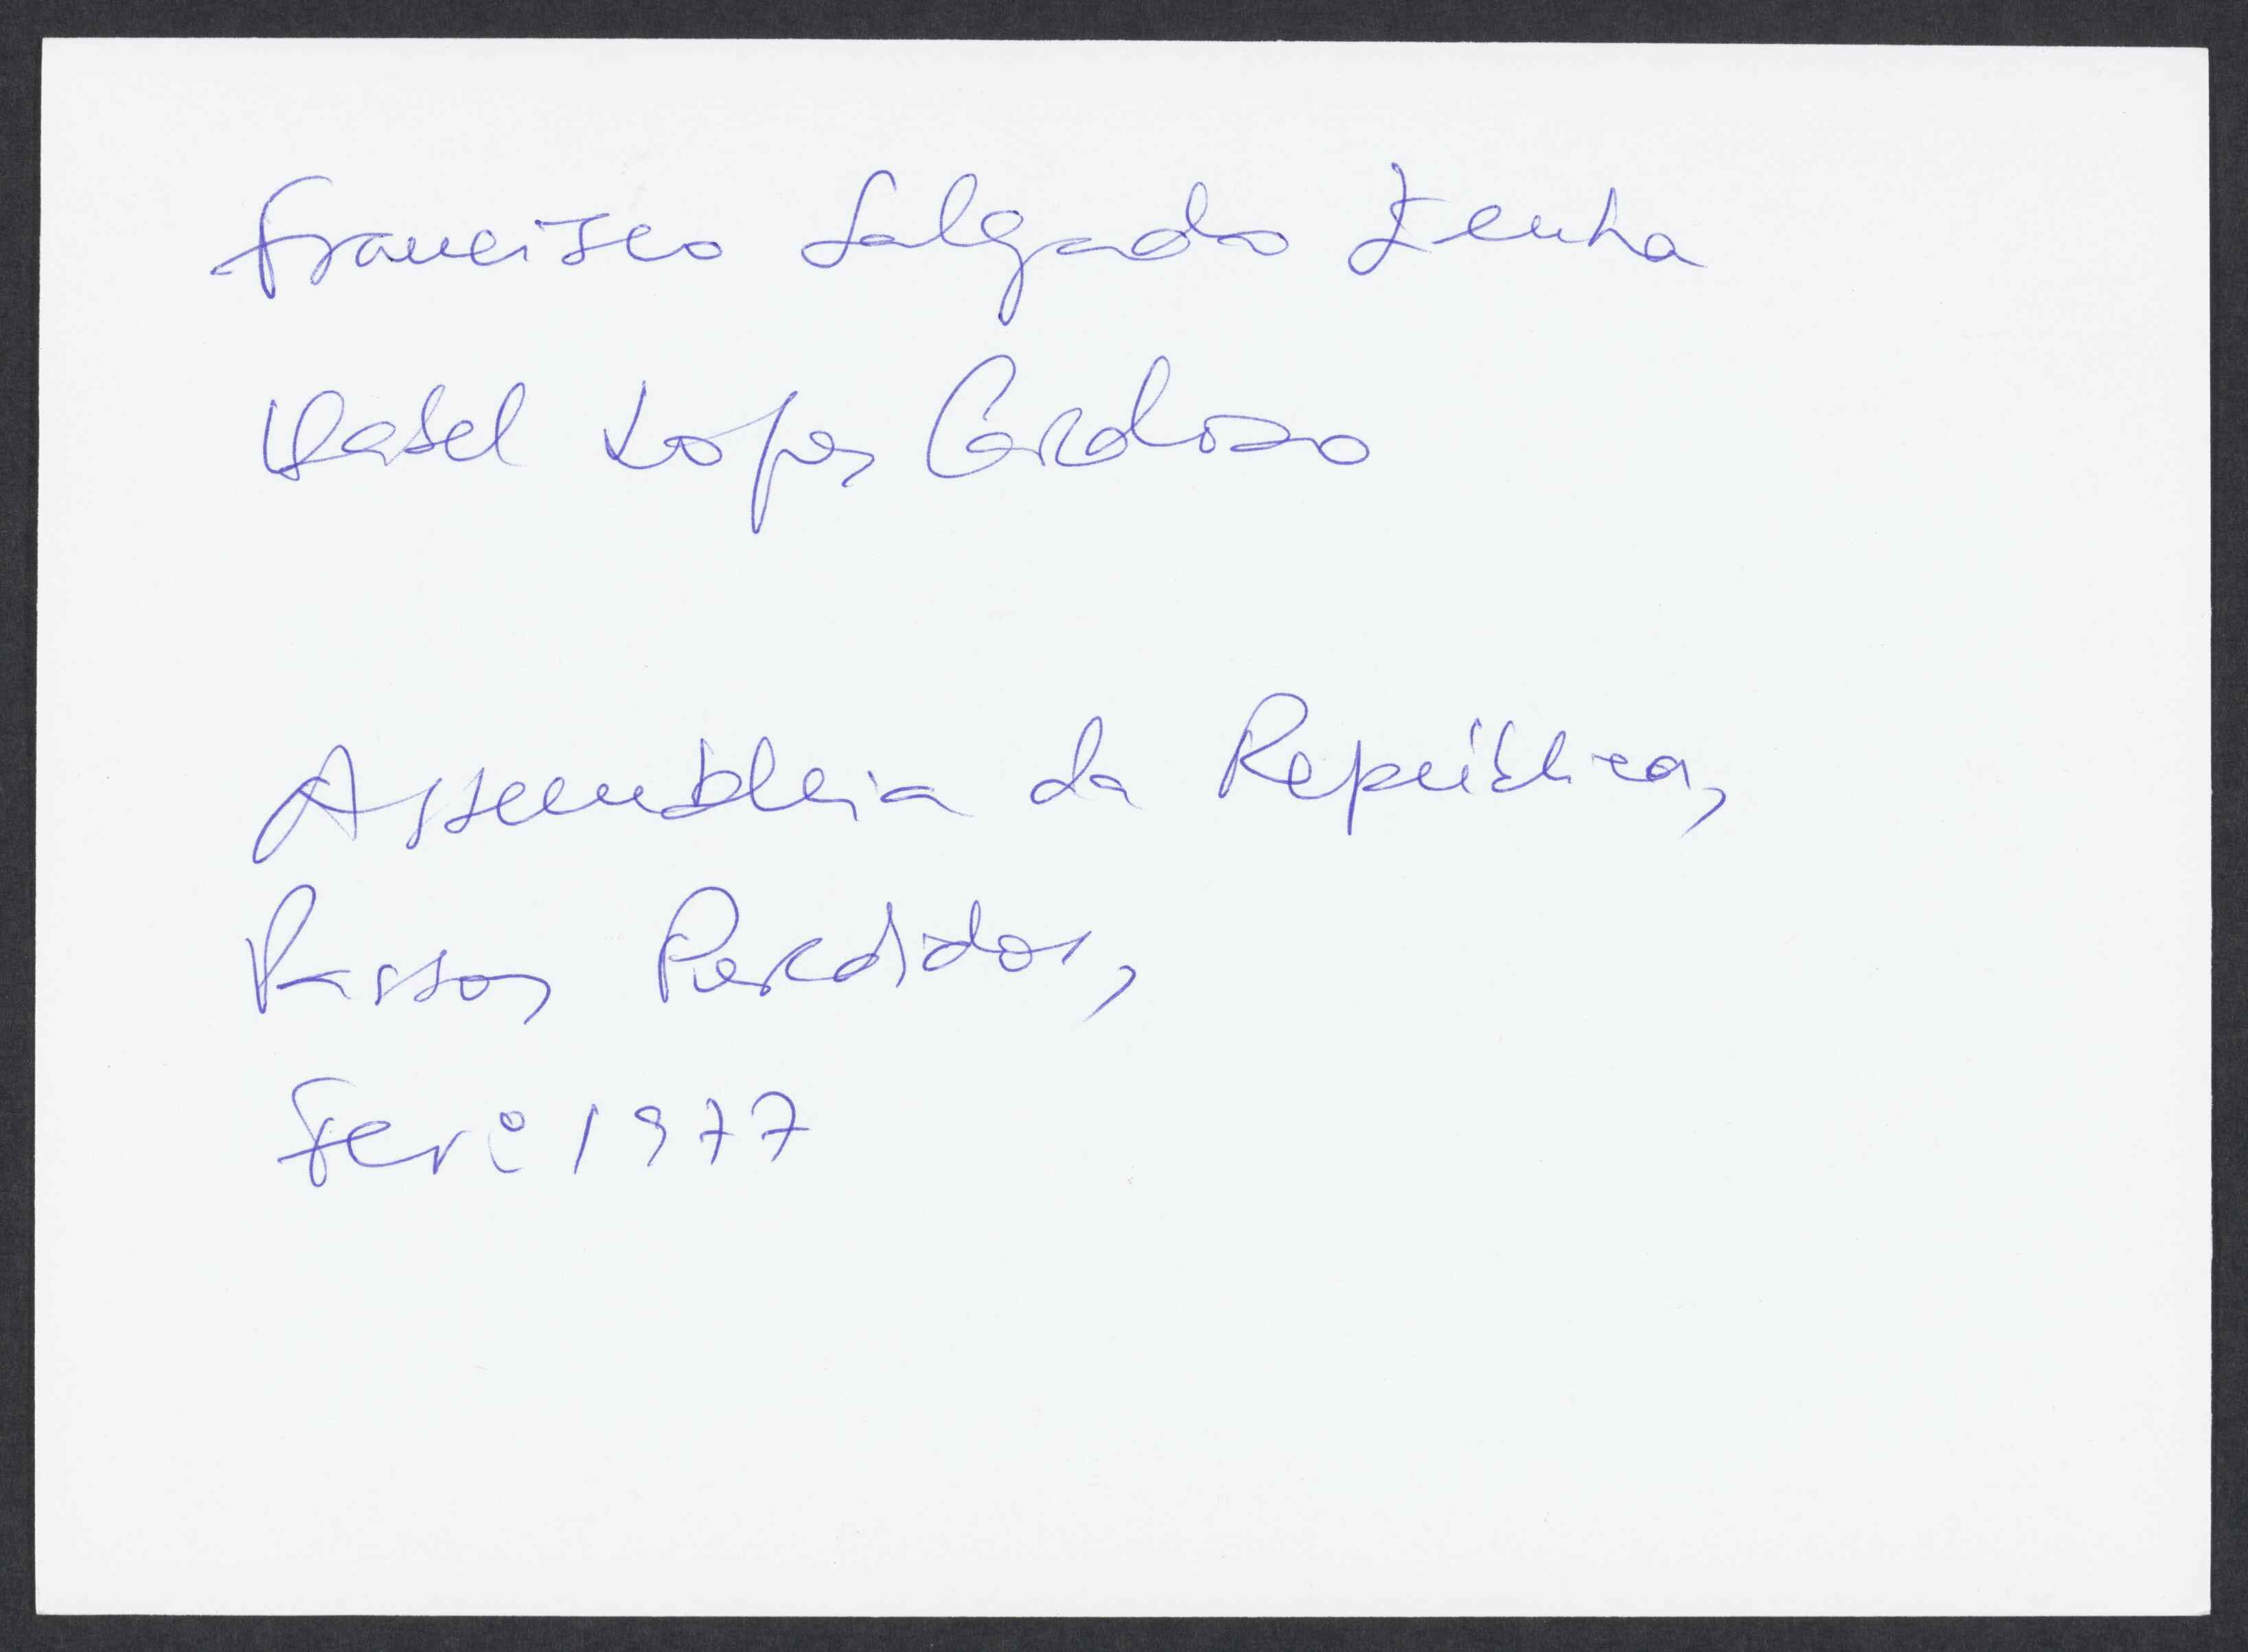 Francisco Salgado Zenha
Isabel Lopes Cardoso
Assembleia da República,
Passos Perdidos,
Fevº 1977